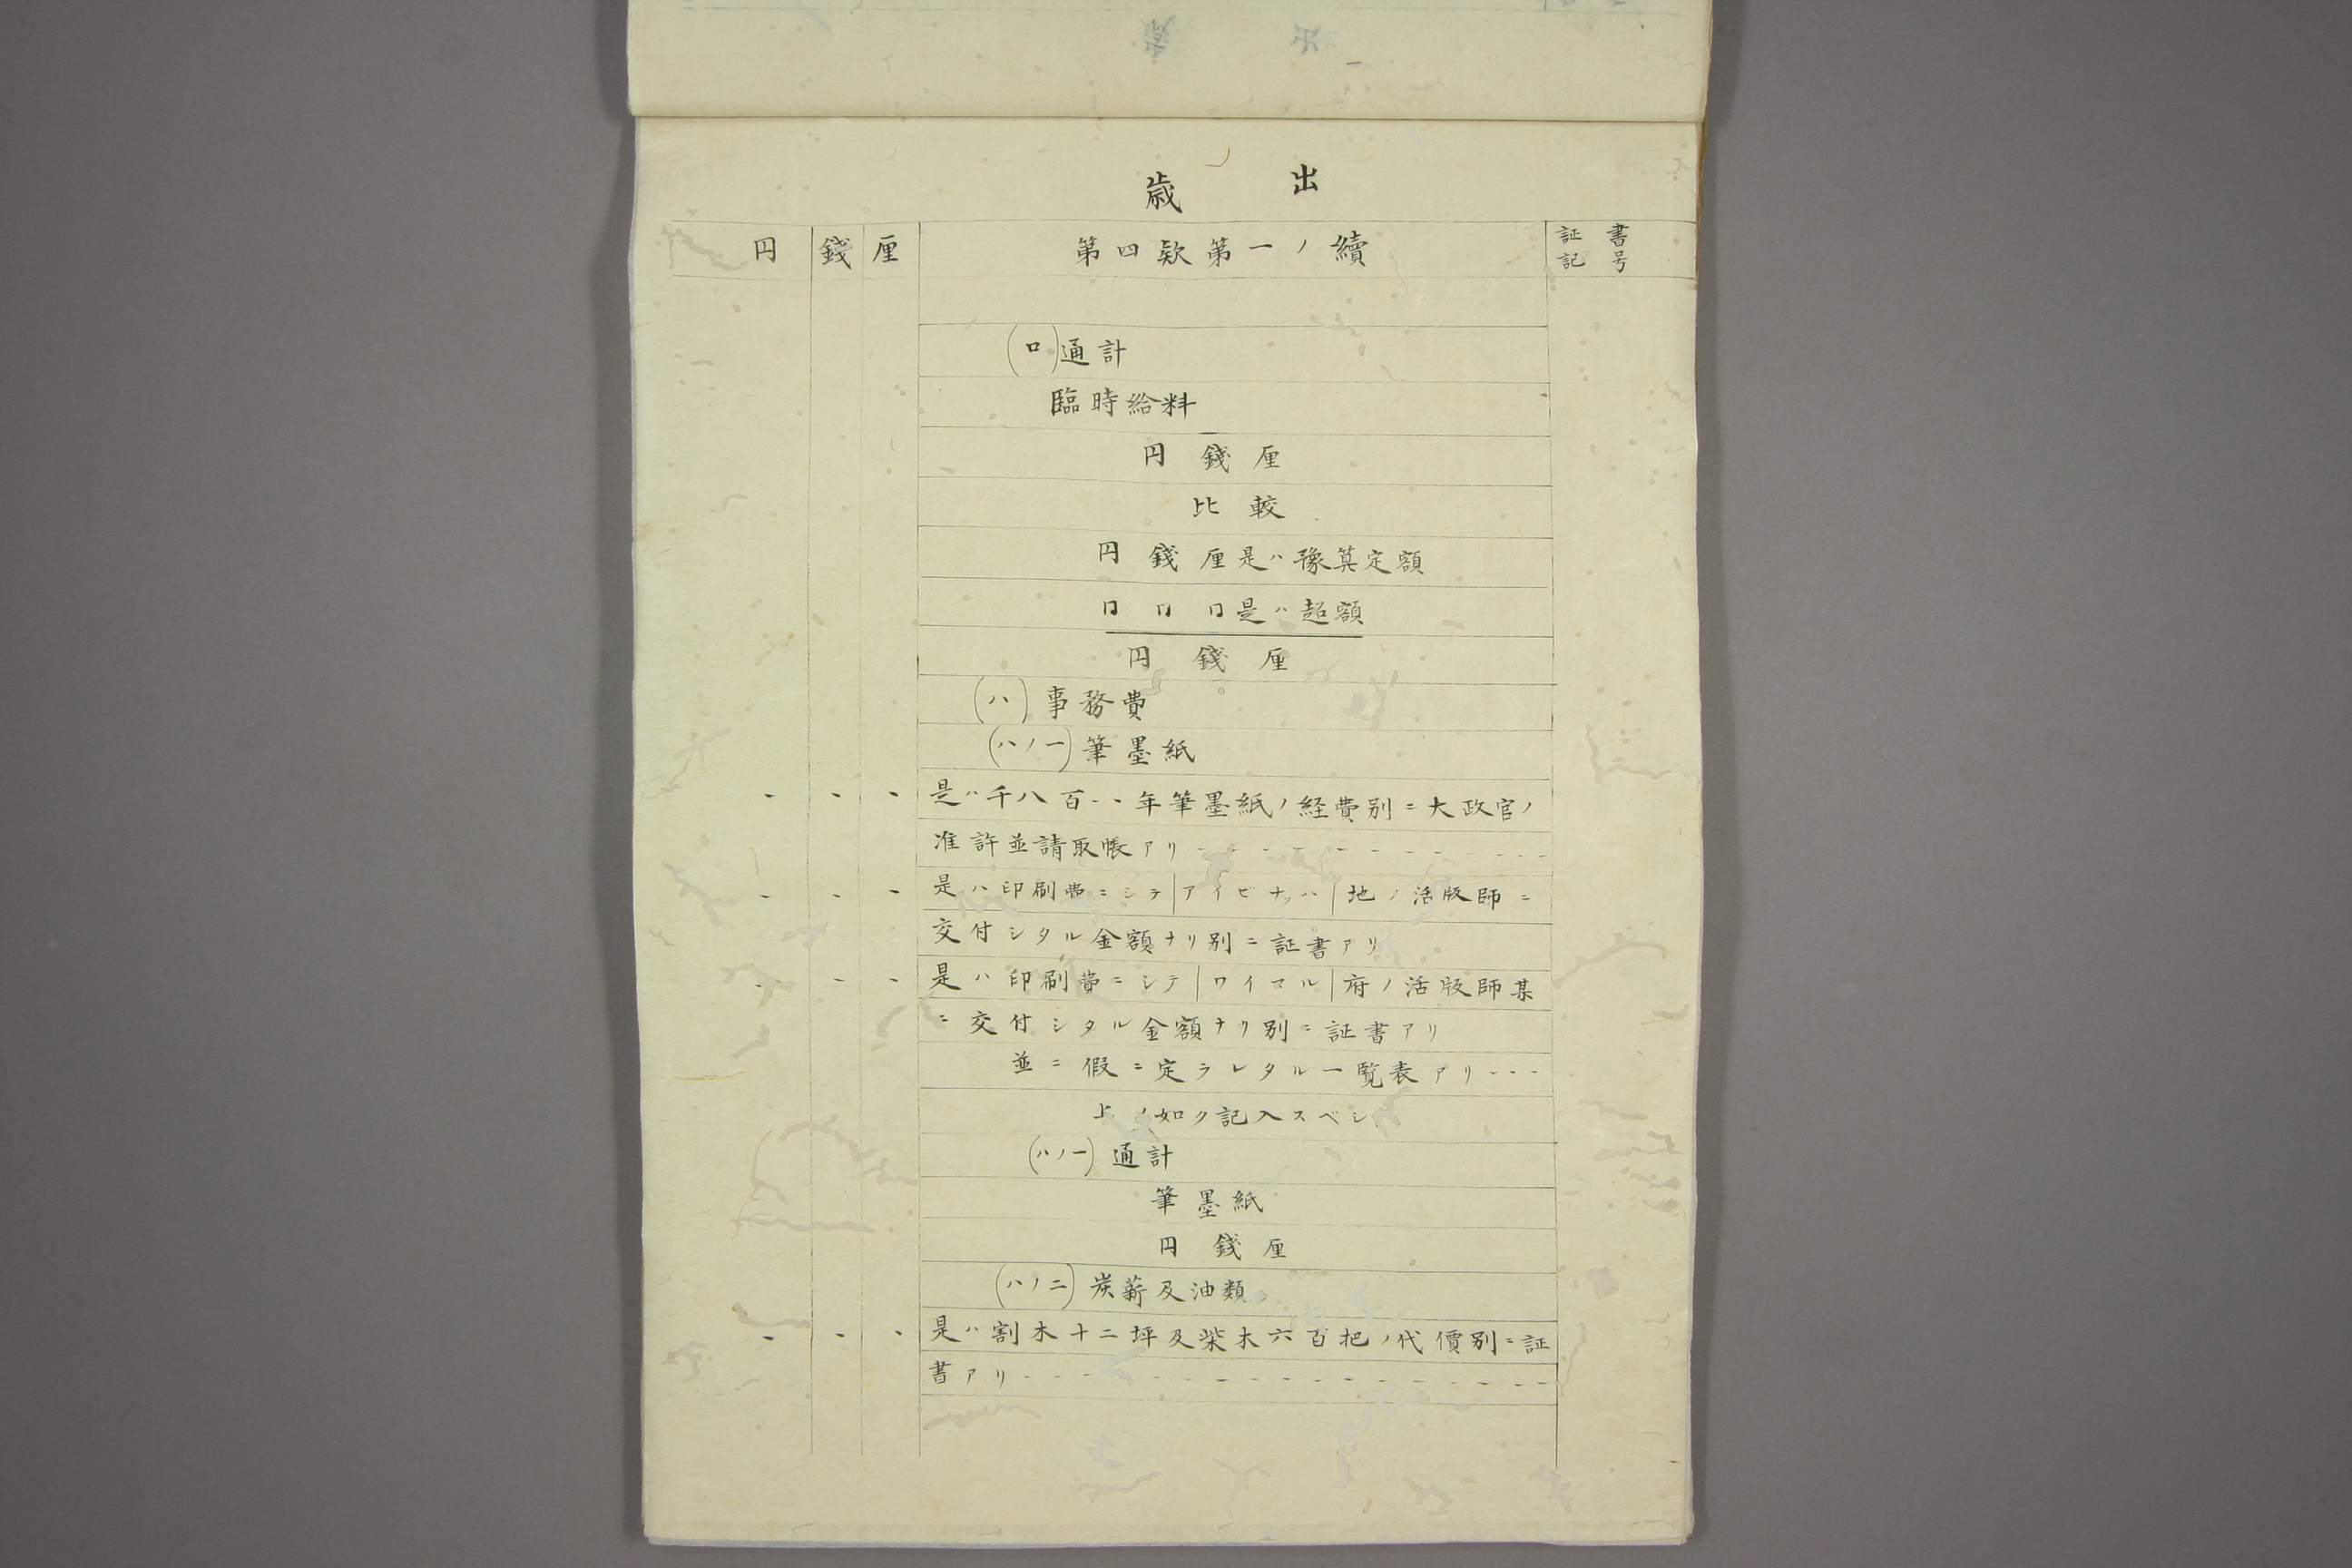 歳出
円 錢 厘 第四欵第一ノ續 証書記号
(ロ)通計
臨時給料
円 錢 厘
比較
円 錢 厘是ハ豫算定額
口 口 口是ハ超額
円 錢 厘
(ハ)事務費
(ハノ一)筆墨紙
是ハ千八百、、年筆墨紙ノ経費別ニ大政官ノ
准許並請取帳アリ
是ハ印刷費ニシテ|アイゼナッハ|地ノ活版師ニ
交付シタル金額ナリ別ニ証書アリ
是ハ印刷費ニシテ|ワイマル|府ノ活版師某
ニ交付シタル金額ナリ別ニ証書アリ
並ニ假ニ定ラレタル一覧表アリ
上ノ如ク記入スベシ
(ハノ一)通計
筆墨紙
円 錢 厘
(ハノ二)炭薪及油類
是ハ割木十二坪及柴木六百把ノ代價別ニ証
書アリ